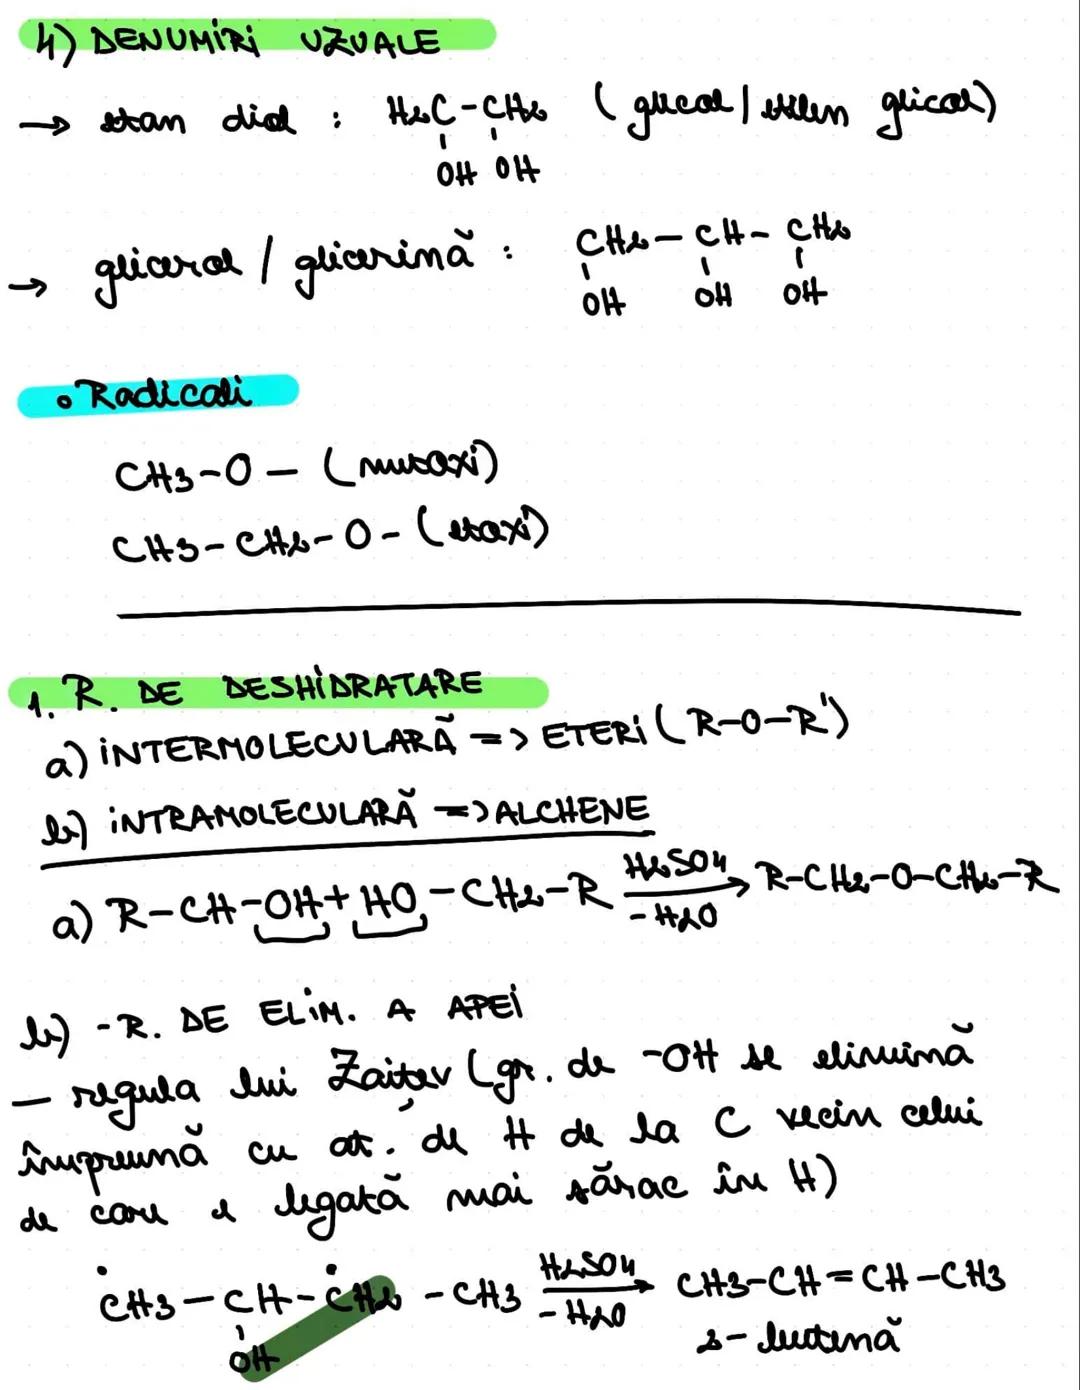 4) DENUMIRI UZUALE
→ etan diol : H2C-CH2 (glicol / etilen glicol)
OH OH
→ glicerol / glicerină : CH2-CH-CH2
OH OH OH
• Radicali
CH3-O- (metoxi)
CH3-CH2-O- (etoxi)
1. R. DE DESHIDRATARE
a) INTERMOLECULARĂ => ETERI (R-O-R')
b) INTRAMOLECULARĂ => ALCHENE
a) R-CH-OH + HO-CH2-R H2SO4 → -H2O R-CH2-O-CH2-R
b) - R. DE ELIM. A APEI
- regula lui Zaițev (gr. de -OH se elimină
împreună cu at. de H de la C vecin celui
de care e legată mai sărac în H)
CH3-CH-CH2-CH3 H2SO4 → -H2O CH3-CH=CH-CH3
OH 2-butenă